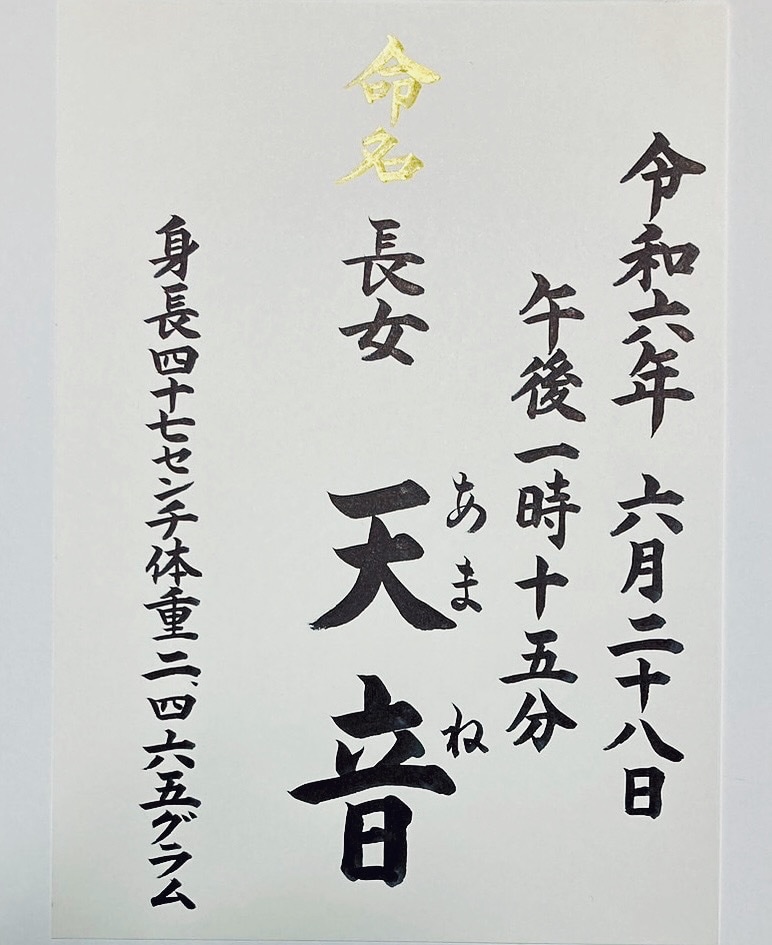 令和六年 六月二十八日
午後一時十五分
命名
長女 天音
あまね
身長四十七センチ体重二、四六五グラム